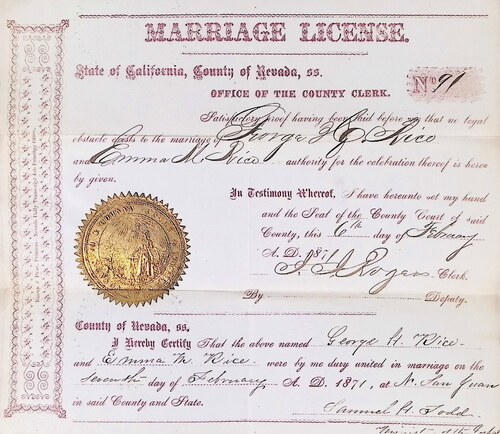 MARRIAGE LICENSE.
State of California, County of Nevada, ss.
No 91
OFFICE OF THE COUNTY CLERK.
Satisfactory proof having been laid before me that no legal
obstacle exists to the marriage of George H. Rice
and Emma M. Rice authority for the celebration thereof is hereby
by given.
In Testimony Whereof, I have hereunto set my hand
and the Seal of the County Court of said
County, this 6th day of February
A. D. 1871
Rogers Clerk.
By Deputy.
County of Nevada, ss.
I Hereby Certify That the above named George H. Rice
and Emma M. Rice. were by me duly united in marriage on the
Seventh day of February A. D. 1871, at N. San Juan
in said County and State.
Samuel H. Todd
Minister of the